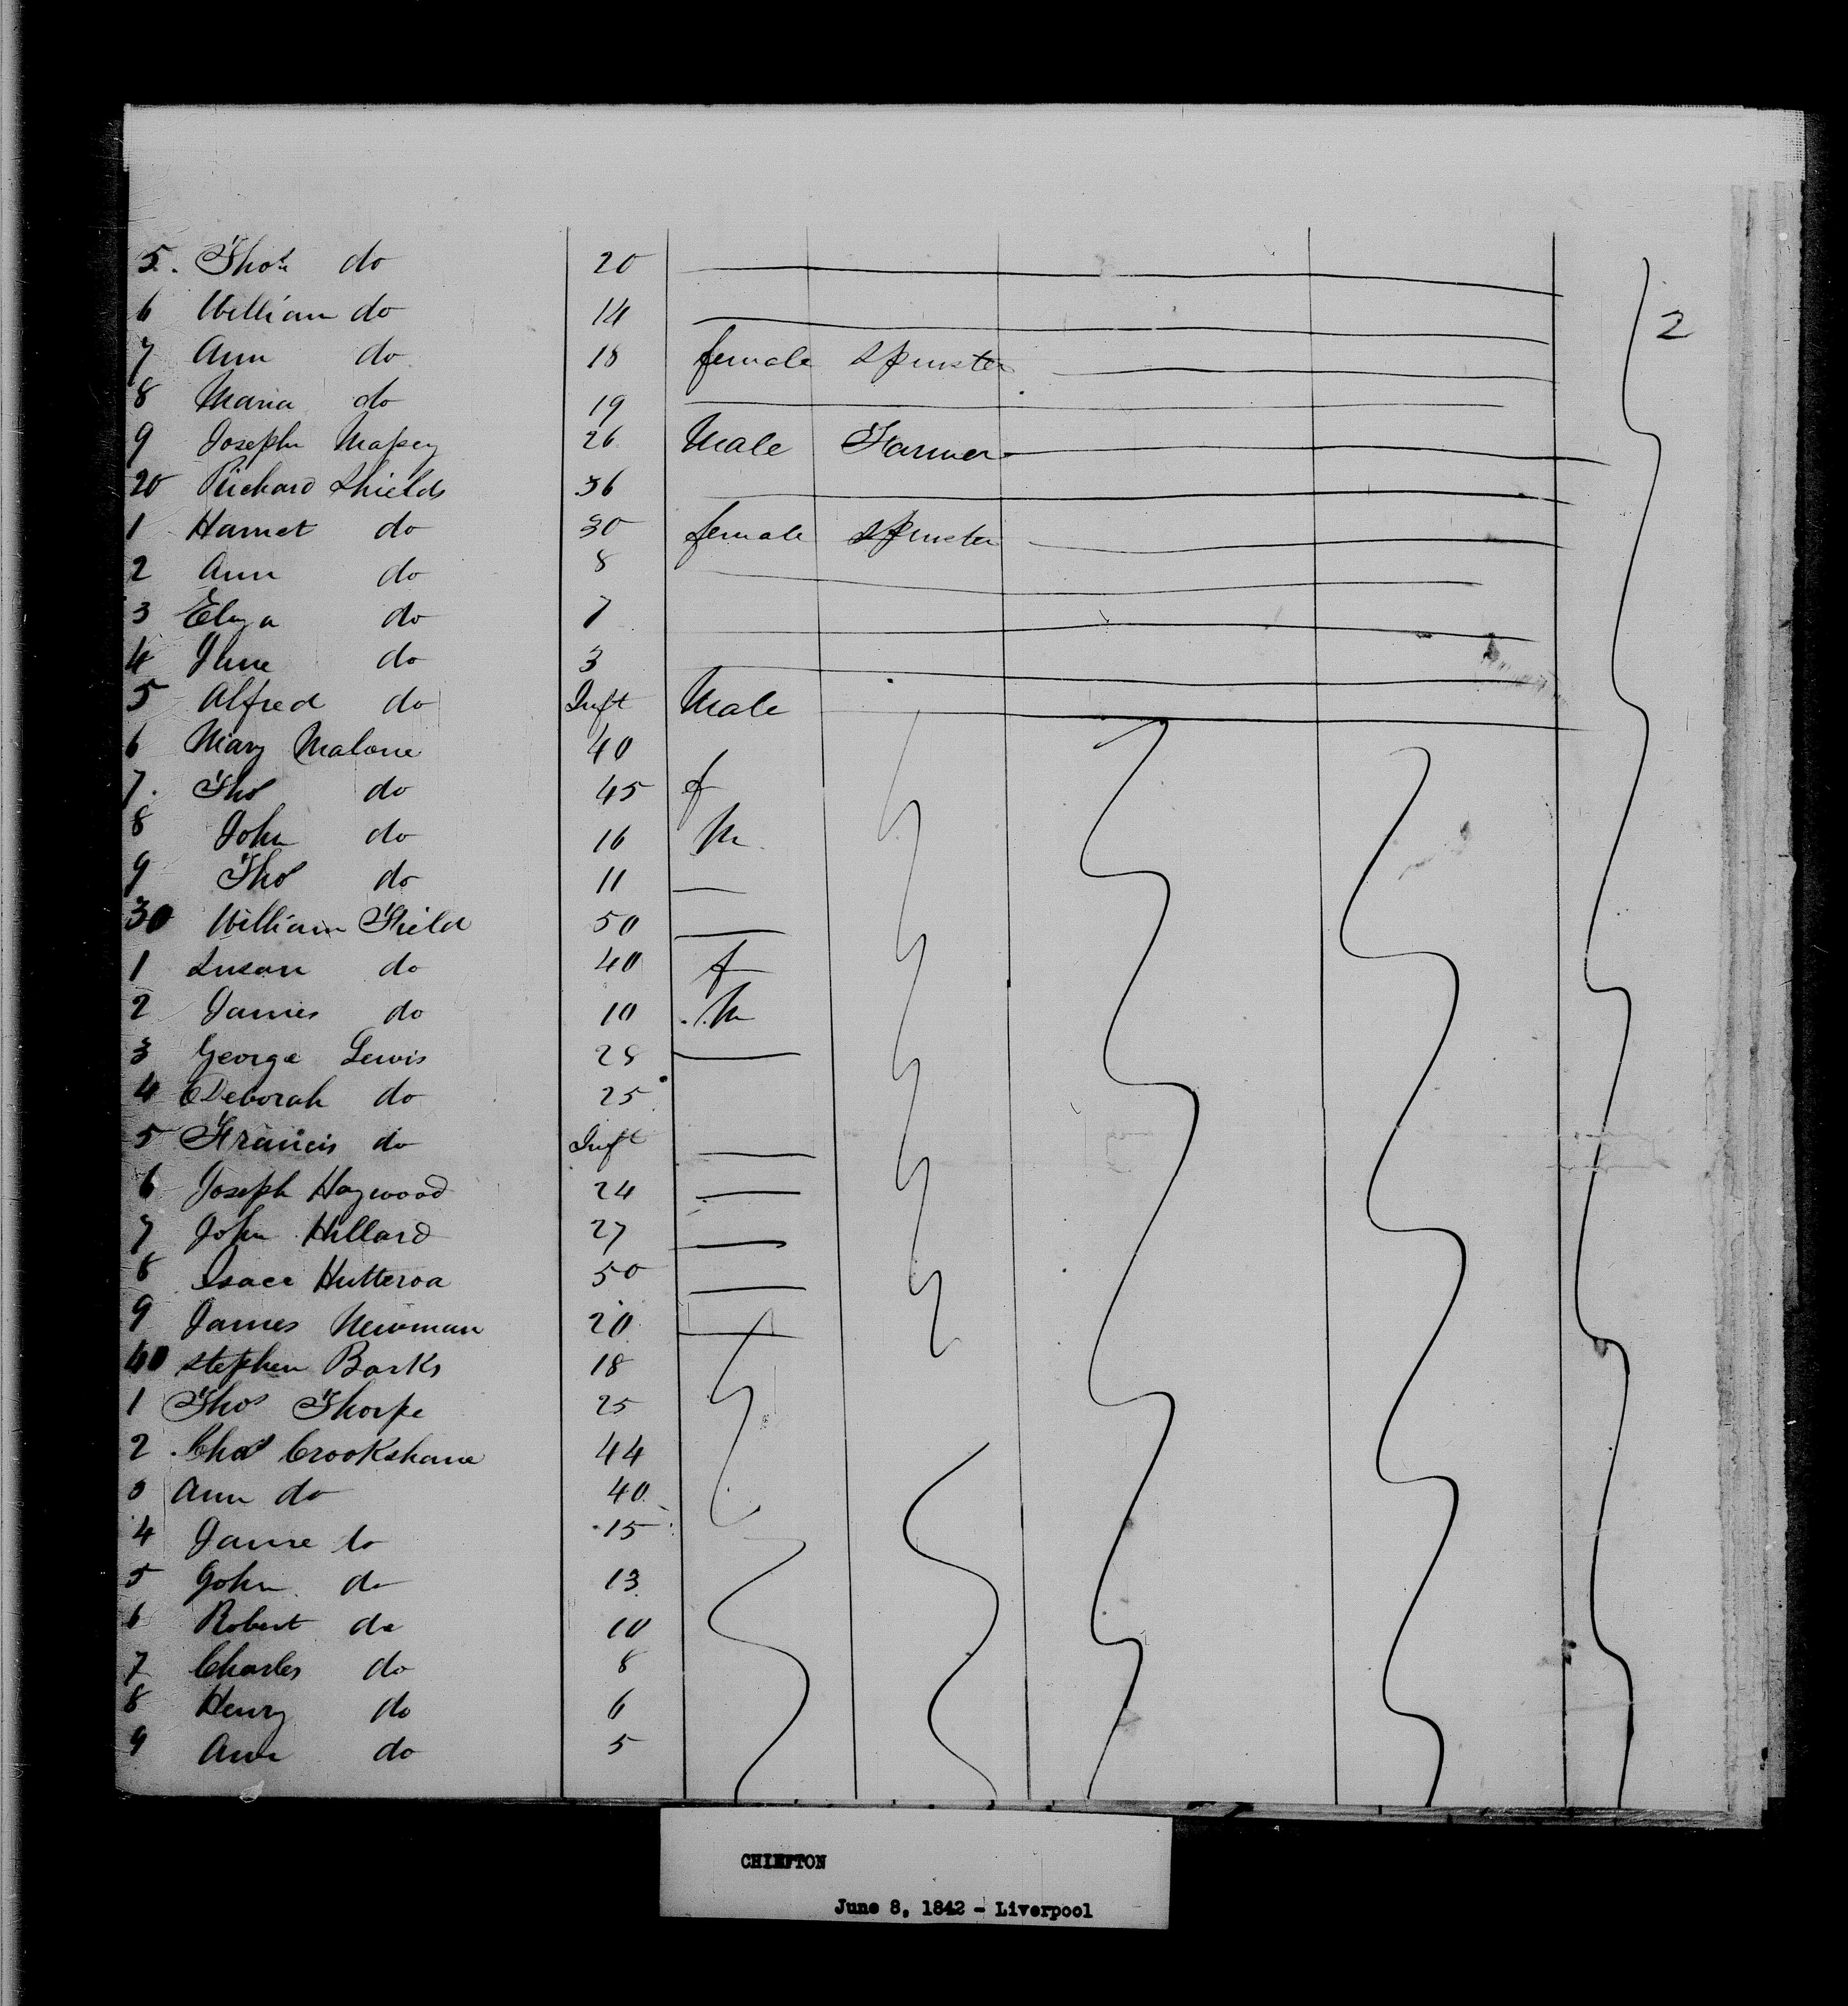 2
5. Thos do 20
6 William do 14
7 Ann do 18 female spinster
8 Maria do 19
9 Joseph Massey 26 Male Farmer
20 Richard Shields 36
1 Harriet do 30 female spinster
2 Ann do 8
3 Eliza do 7
4 Jane do 3
5 Alfred do Inft Male
6 Mary Malone 40
7. Thos do 45 f
8 John do 16 M
9 Thos do 11
30 William Field 50
1 Susan do 40 f
2 James do 10 M
3 George Lewis 28
4 Deborah do 25
5 Francis do Inft
6 Joseph Haywood 24
7 John Hillard 27
8 Isaac 50
9 James Newman 20
40 Stephen Barks 18
1 Thos Thorpe 25
2 Chas Crookshane 44
3 Ann do 40
4 do 15
5 John do 13
6 Robert do 10
7 Charles do 8
8 Henry do 6
9 Ann do 5
CHIEFTON
June 8, 1842 - Liverpool